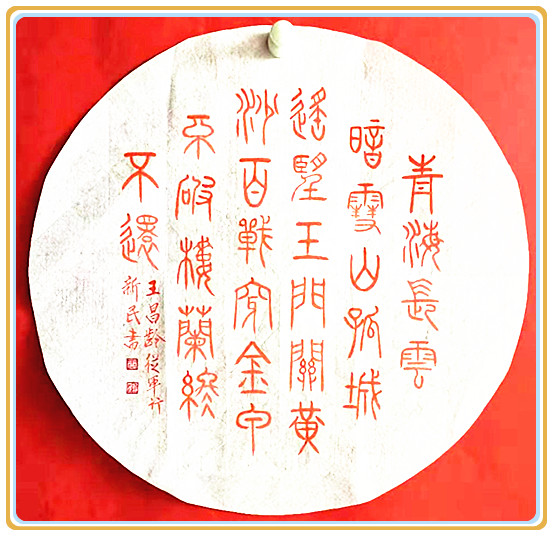 青海長雲
暗雪山孤城
遙望玉門關黃
沙百戰穿金甲
不破樓蘭終
不還
王昌齡從軍行
新民書